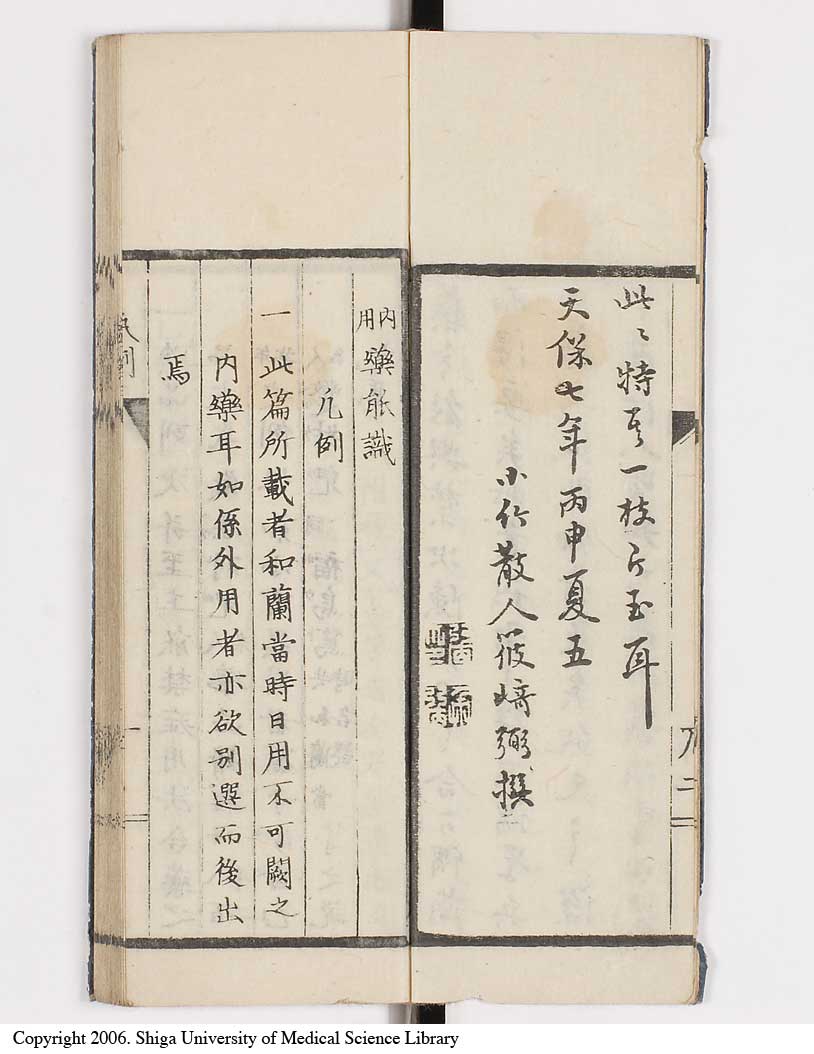 此〻特其一枝片玉耳
天保七年丙申夏五
小竹散人筱﨑弼撰
内用藥能識
凡例
一此篇所載者和蘭當時日用不可闕之
内藥耳如係外用者亦欲別選而後出
焉
凡例
Copyright 2006. Shiga University of Medical Science Library